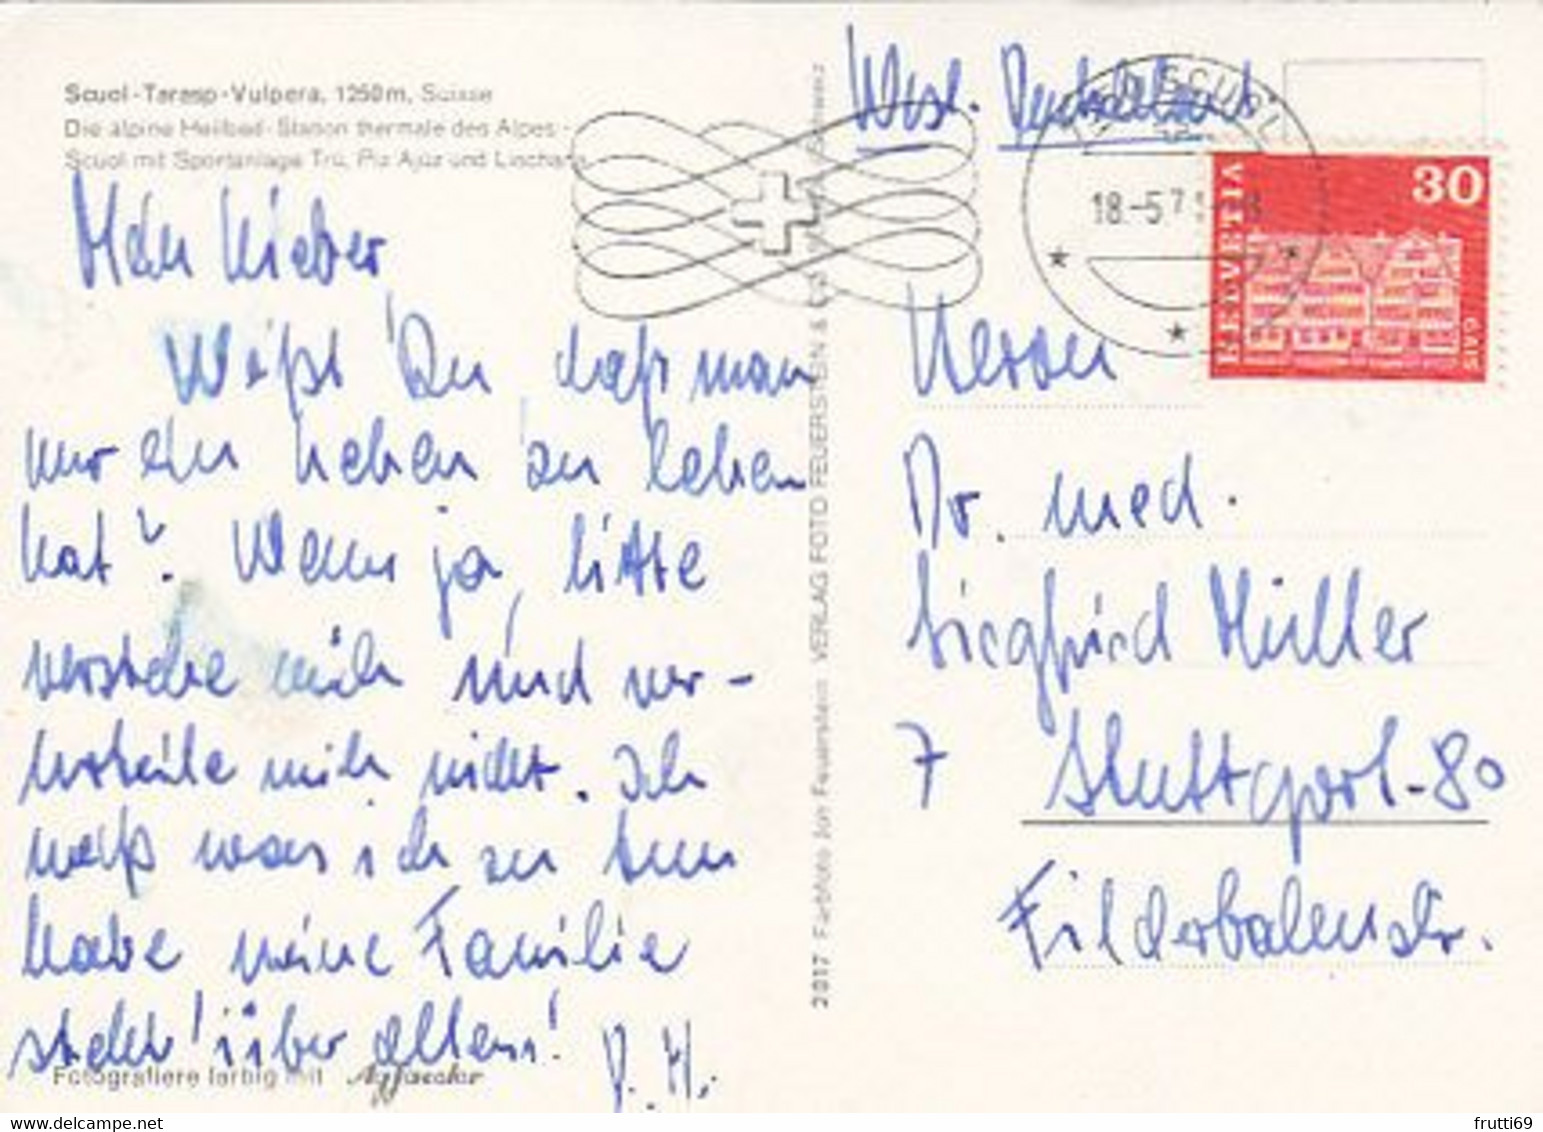 Scuol-Tarasp-Vulpera, 1250m, Suisse
Die alpine Heilbad-Station thermale des Alpes -
Scuol mit Sportanlage Trü, Piz Ajüz und Lischana
Mein Lieber,
Weißt Du, daß man
nur ein Leben zu leben
hat? Wenn ja, bitte
verstehe mich und ver-
urteile mich nicht. Ich
weiß was ich zu tun
habe meine Familie
steht über allem!
P. H.
Fotografiere farbig mit Agfacolor
2017 Farbfoto Jon Feuerstein VERLAG FOTO FEUERSTEIN &
West-Deutschland
SCUOL
18.-5.71
HELVETIA
30
GAIS
Herrn
Dr. med.
Siegfried Müller
7 Stuttgart-80
Filderbahnstr.
www.delcampe.net
frutti69